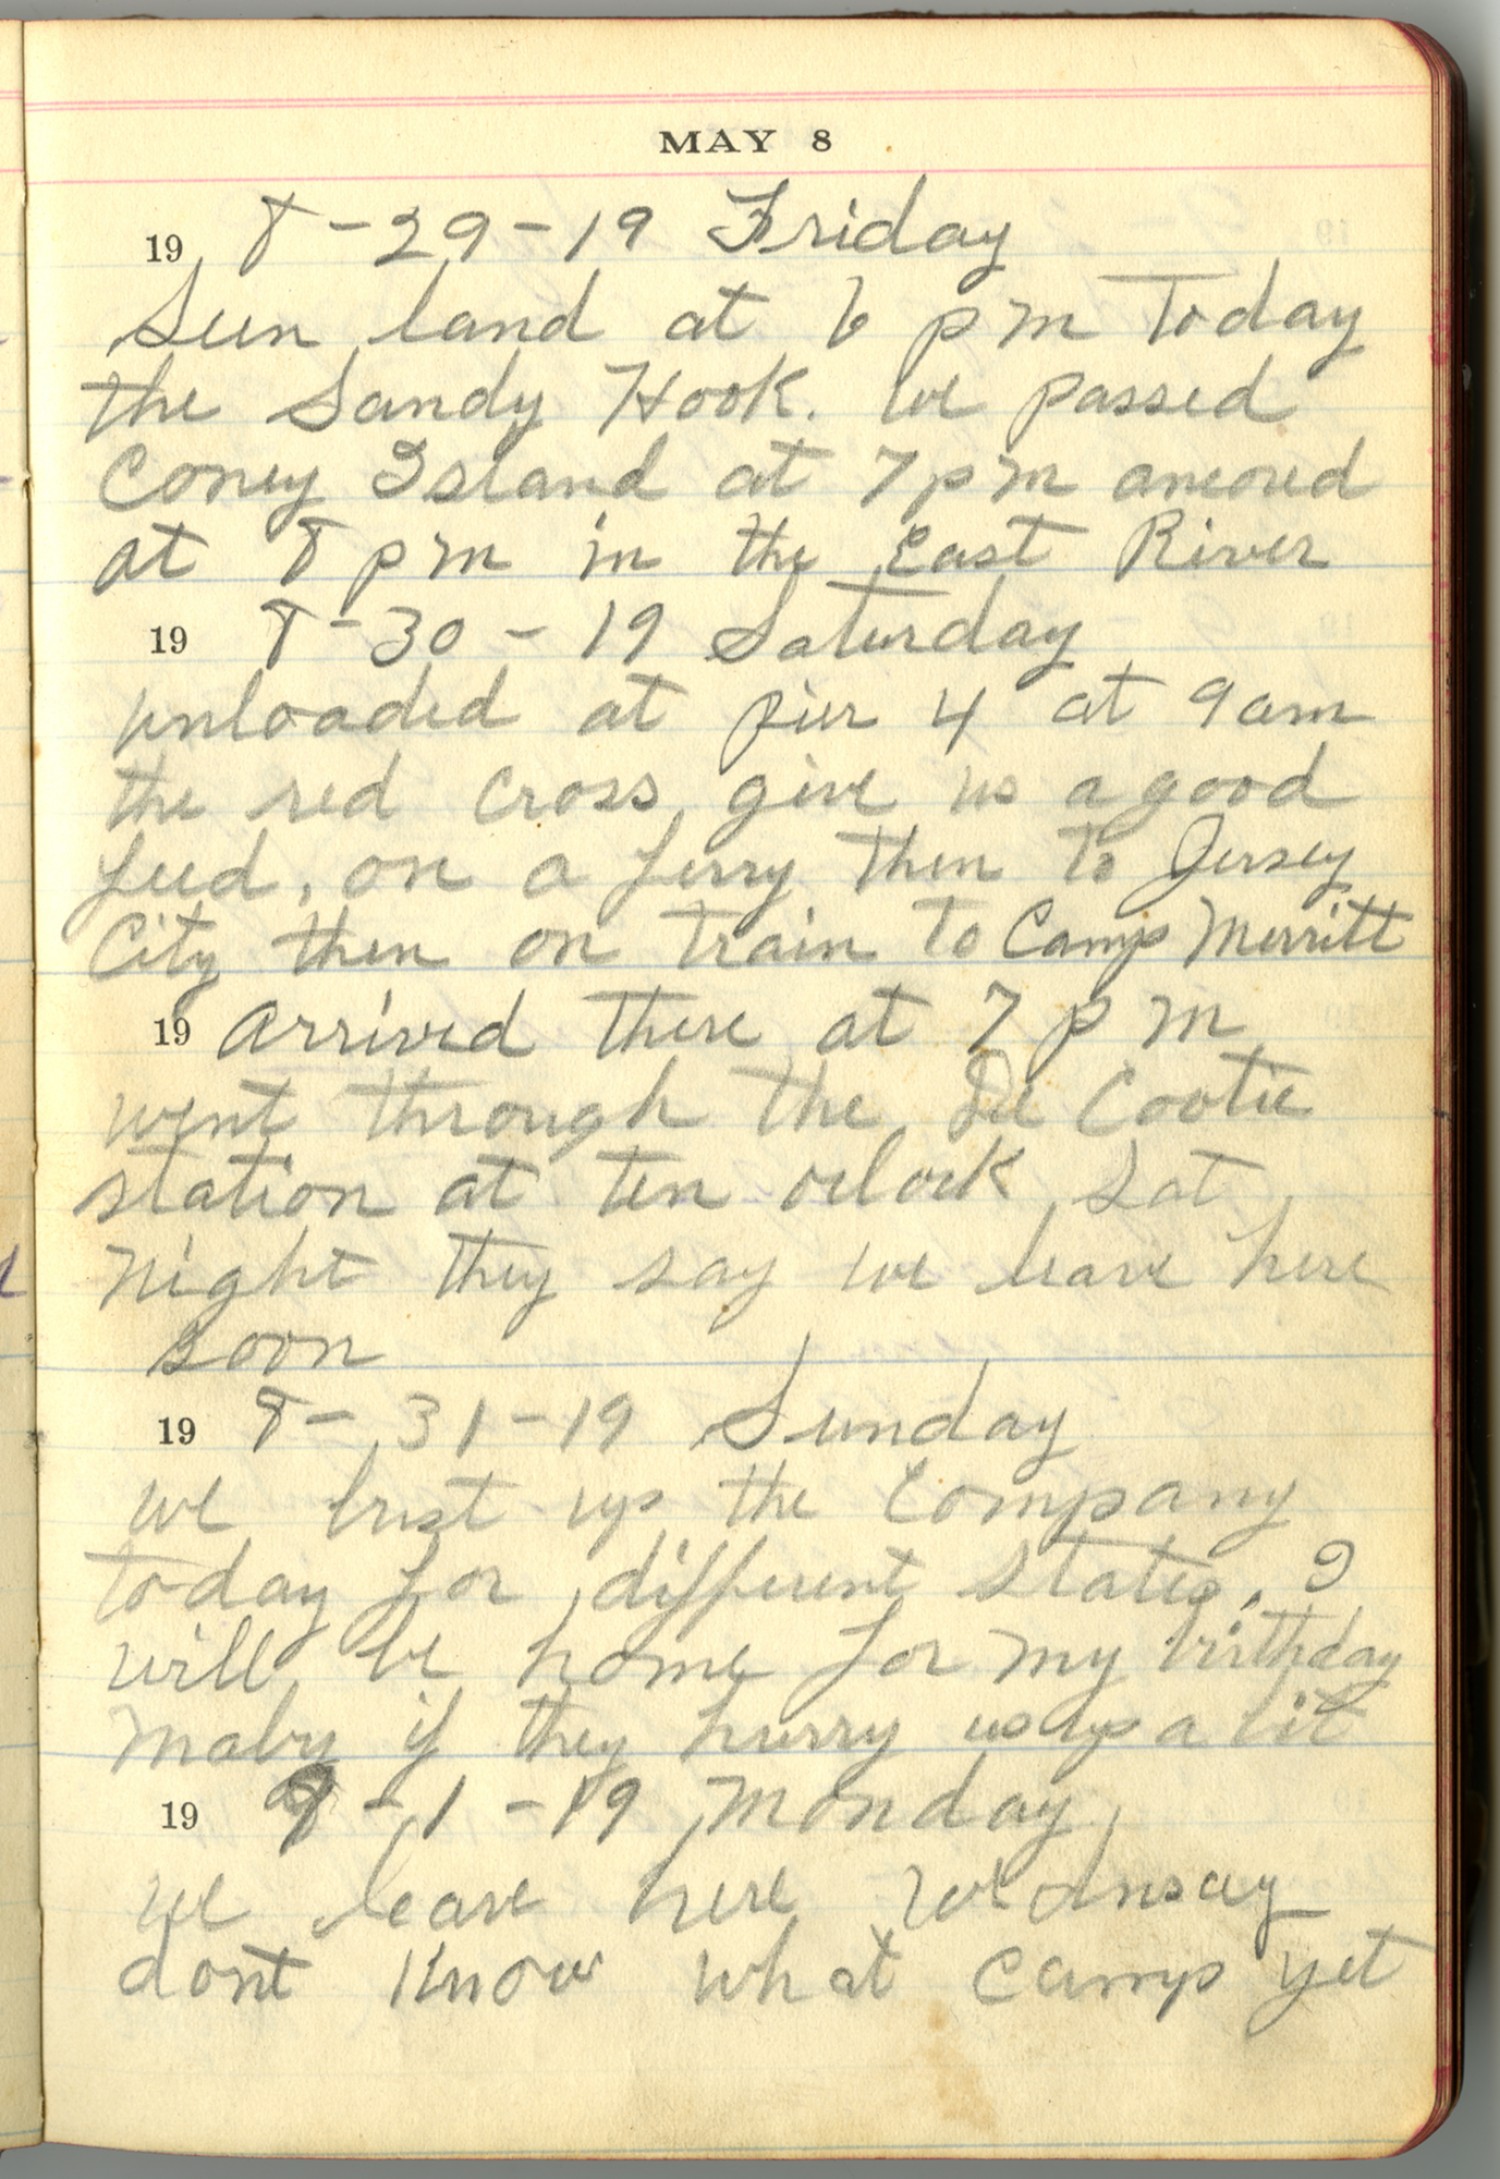 MAY 8
19 8-29-19 Friday
Seen land at 6 pm today
the Sandy Hook. we passed
Coney Island at 7 pm ancored
at 8 pm in the East River
19 8-30-19 Saturday
unloaded at pier 4 at 9 am
the red cross give us a good
feed, on a ferry then to Jersey
City then on train to Camp Merritt
19 arrived there at 7 pm
went through the De Cootie
station at ten oclock Sat
night they say we leave here
soon
19 8-31-19 Sunday
we brust up the Company
today for different states. I
will be home for my birthday
maby if they hurry us up a bit
19 9-1-19 Monday
we leave here
dont know what camp yet